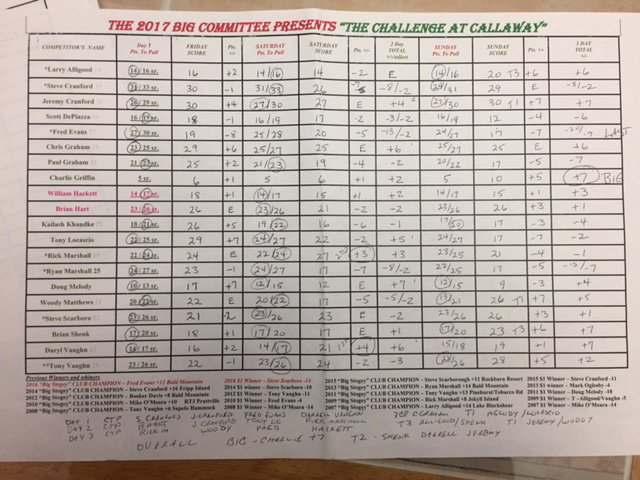 THE 2017 BIG COMMITTEE PRESENTS "THE CHALLENGE AT CALLAWAY"
COMPETITOR'S NAME Day 1 Pts. To Pull FRIDAY SCORE Pts. +/- SATURDAY Pts. To Pull SATURDAY SCORE Pts. +/- 2 Day TOTAL +/-/adjust SUNDAY Pts. To Pull SUNDAY SCORE Pts. +/- 3 DAY TOTAL +/-
*Larry Alligood 14 / 16 sr. 16 +2 14/16 14 -2 E 14/16 20 T3 +6 +6
*Steve Cranford 31 / 33 sr. 30 -1 31/33 26 -8/-2 29/31 29 E -8/-2
Jeremy Cranford 26 / 29 sr. 30 +4 27/30 27 E +4 27/30 30 T1 +7 +7
Scott DePiazza 16 / 19 sr. 18 -1 16/19 17 -2 -3/-2 16/19 12 -4 -6
*Fred Evans 27 / 30 sr. 19 -8 25/28 20 -5 -13/-2 24/27 17 -7 -20/-9 LAST
Chris Graham 23 / 25 sr. 29 +6 25/27 25 E +6 25/27 25 E +6
Paul Graham 21 / 23 sr. 25 +2 21/23 19 -4 -2 20/22 17 -5 -7
Charlie Griffin 5 sr. 6 +1 5 6 +1 +2 5 10 +5 +7 BIG
William Hackett 14 / 17 sr. 18 +1 14/17 15 +1 +2 14/17 15 +1 +3
Brian Hart 23 / 26 sr. 26 E 23/26 21 -2 -2 23/26 26 +3 +1
Kailash Khandke 18 / 21 sr. 26 +5 19/22 16 -6 -1 17/20 17 -3 -4
Tony Locascio 22 / 25 sr. 29 +7 24/27 22 -2 +5 24/27 17 -7 -2
*Rick Marshall 22 / 24 sr. 24 E 22/24 27 +3 +3 23/25 21 -4 -1
*Ryan Marshall 25 24 / 27 sr. 23 -1 24/27 17 -7 -8/-2 22/25 17 -5 -13/-7
Doug Melody 10 / 13 sr. 17 +7 12/15 12 E +7 12/15 9 -3 +4
Woody Matthews 20 / 22 sr. 22 E 20/22 17 -5 -5/-2 19/21 26 T1 +7 +5
*Steve Scarboro 23 / 26 sr. 21 -2 23/26 23 E -2 23/26 26 +3 +1
Brian Shenk 17 / 20 sr. 18 +1 17/20 17 E +1 17/20 23 T3 +6 +7
Daryl Vaughn 14 / 17 sr. 16 +2 14/17 21 +4 +6 15/18 19 +1 +7
**Tony Vaughn 23 / 26 sr. 22 -1 23/26 24 -2 -3 23/26 28 +5 +2
Previous Winners and whiners
2016 "Big Stogey" CLUB CHAMPION – Fred Evans +11 Bald Mountain 2016 $1 Winner – Steve Scarboro -14 2015 "Big Stogey" CLUB CHAMPION – Steve Scarborough +11 Rockbarn Resort 2015 $1 Winner – Steve Cranford -11
2014 "Big Stogey" CLUB CHAMPION – Steve Cranford +16 Fripp Island 2014 $1 winner – Steve Scarboro -12 2013 "Big Stogey" CLUB CHAMPION – Ryan Marshall +18 Bald Mountain 2013 $1 winner – Mark Oglesby -4
2012 "Big Stogey" CLUB CHAMPION – Booker Davis +8 Bald Mountain 2012 $1 Winner – Tony Vaughn -11 2011 "Big Stogey" CLUB CHAMPION – Tony Vaughn +13 Pinehurst/Tobacco Rd 2011 $1 Winner – Doug Melody -18
2010 "Big Stogey" CLUB CHAMPION – Mike O'Meara +10 RTJ Prattville 2010 $1 Winner – Fred Evans -4 2009 "Big Stogey" CLUB CHAMPION – Rick Marshall +8 Jekyll Island 2009 $1 Winner – T. Alligood/Vaughn -5
2008 "Big Stogey" CLUB CHAMPION – Tony Vaughn +6 Sapelo Hammock 2008 $1 Winner – Mike O'Meara -4 2007 "Big Stogey" CLUB CHAMPION – Larry Alligood +14 Lake Blackshear 2007 $1 Winner – Mike O'Meara -14
DAY 1 CTP S CRANFORD J CRANFORD FRED EVANS DARRELL VAUGHN C GRAHAM T1 MELODY/LOCASCIO
DAY 2 CTP B HART J. CRANFORD TONY LO RICK MARSHALL T3 ALLIGOOD/SHENK T1 JEREMY/WOODY
DAY 3 CTP RICK M WOODY FRED HACKETT
OVERALL BIG - CHARLIE +7 T2 - SHENK DARRELL JEREMY